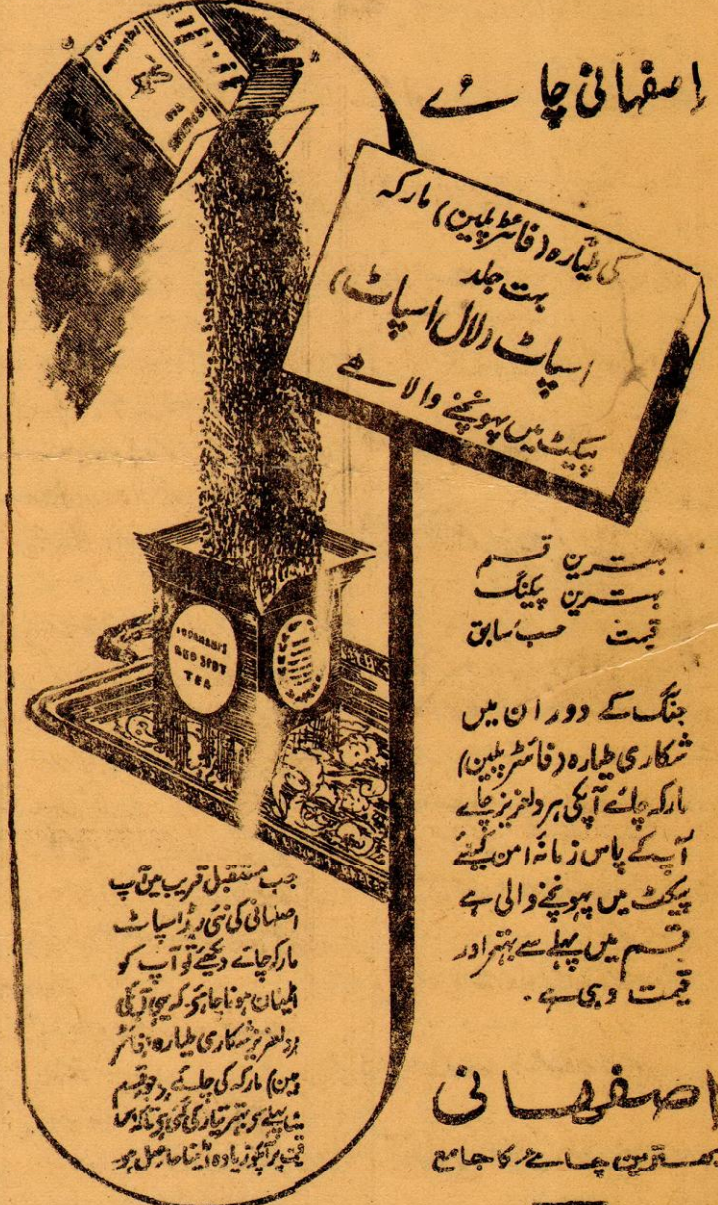 اصفہانی چائے
کی طیارہ (فائٹر پلین) مارکہ
بہت جلد
اسپاٹ (لال اسپاٹ)
پیکیٹ میں پہونچنے والا ہے
بہترین قسم
بہترین پیکنگ
قیمت حسب سابق
جنگ کے دوران میں
شکاری طیارہ (فائٹر پلین)
مارکہ چائے آپکی ہر دلعزیز چائے
آپ کے پاس زمانۂ امن کیلئے
پیکٹ میں پہونچنے والی ہے
قسم میں پہلے سے بہتر اور
قیمت وہی ہے۔
RED SPOT
TEA
جب مستقبل قریب میں آپ
اصفہانی کی نئی ریڈ اسپاٹ
مارکہ چائے دیکھئے تو آپ کو
اطمینان ہونا چاہئے کہ یہی آپکی
ہر دلعزیز شکاری طیارہ (فائٹر
پلین) مارکہ کی چائے ہے جو قسم
میں پہلے سے بہتر تیار کی گئی ہے تاکہ
قیمت پر آپکو زیادہ حاصل ہو۔
اصفہانی
بہترین چائے کا جامع